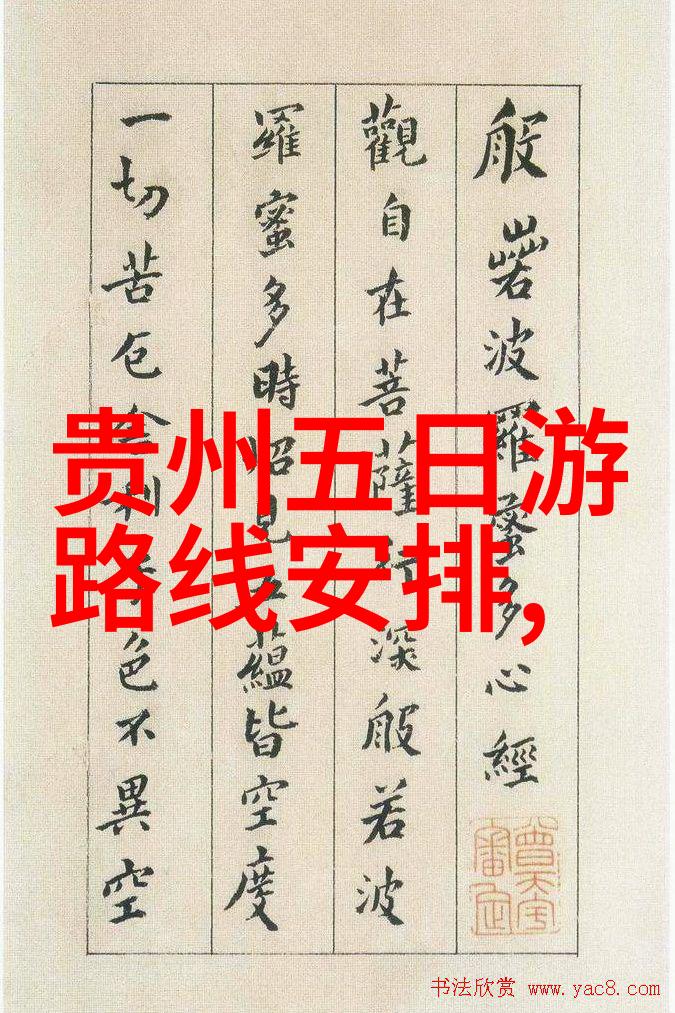 般若波羅蜜多心經
觀自在菩薩行深般若波
羅蜜多時照見五蘊皆空度
一切苦厄舍利子色不異空
贵州五日游
路线安排,
书法欣赏 www.yac8.com